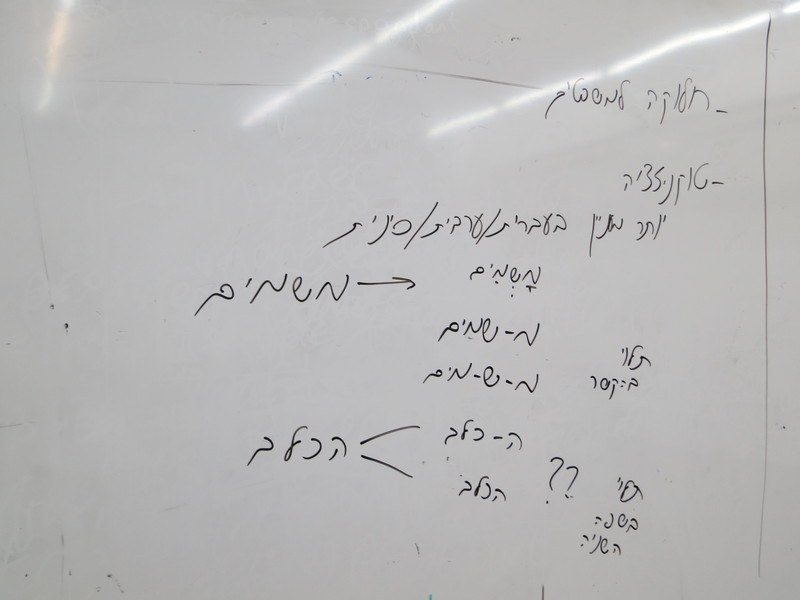 - חלוקה למשפטים
- טוקניזציה
יותר מעניין בעברית/ערבית/סינית
משמים → מְשַׁמִים
מ-שמים
מ-ש-מים
תלוי
בהקשר
הכלב < ה-כלב
הכלב
??
תלוי
בשפה
השניה